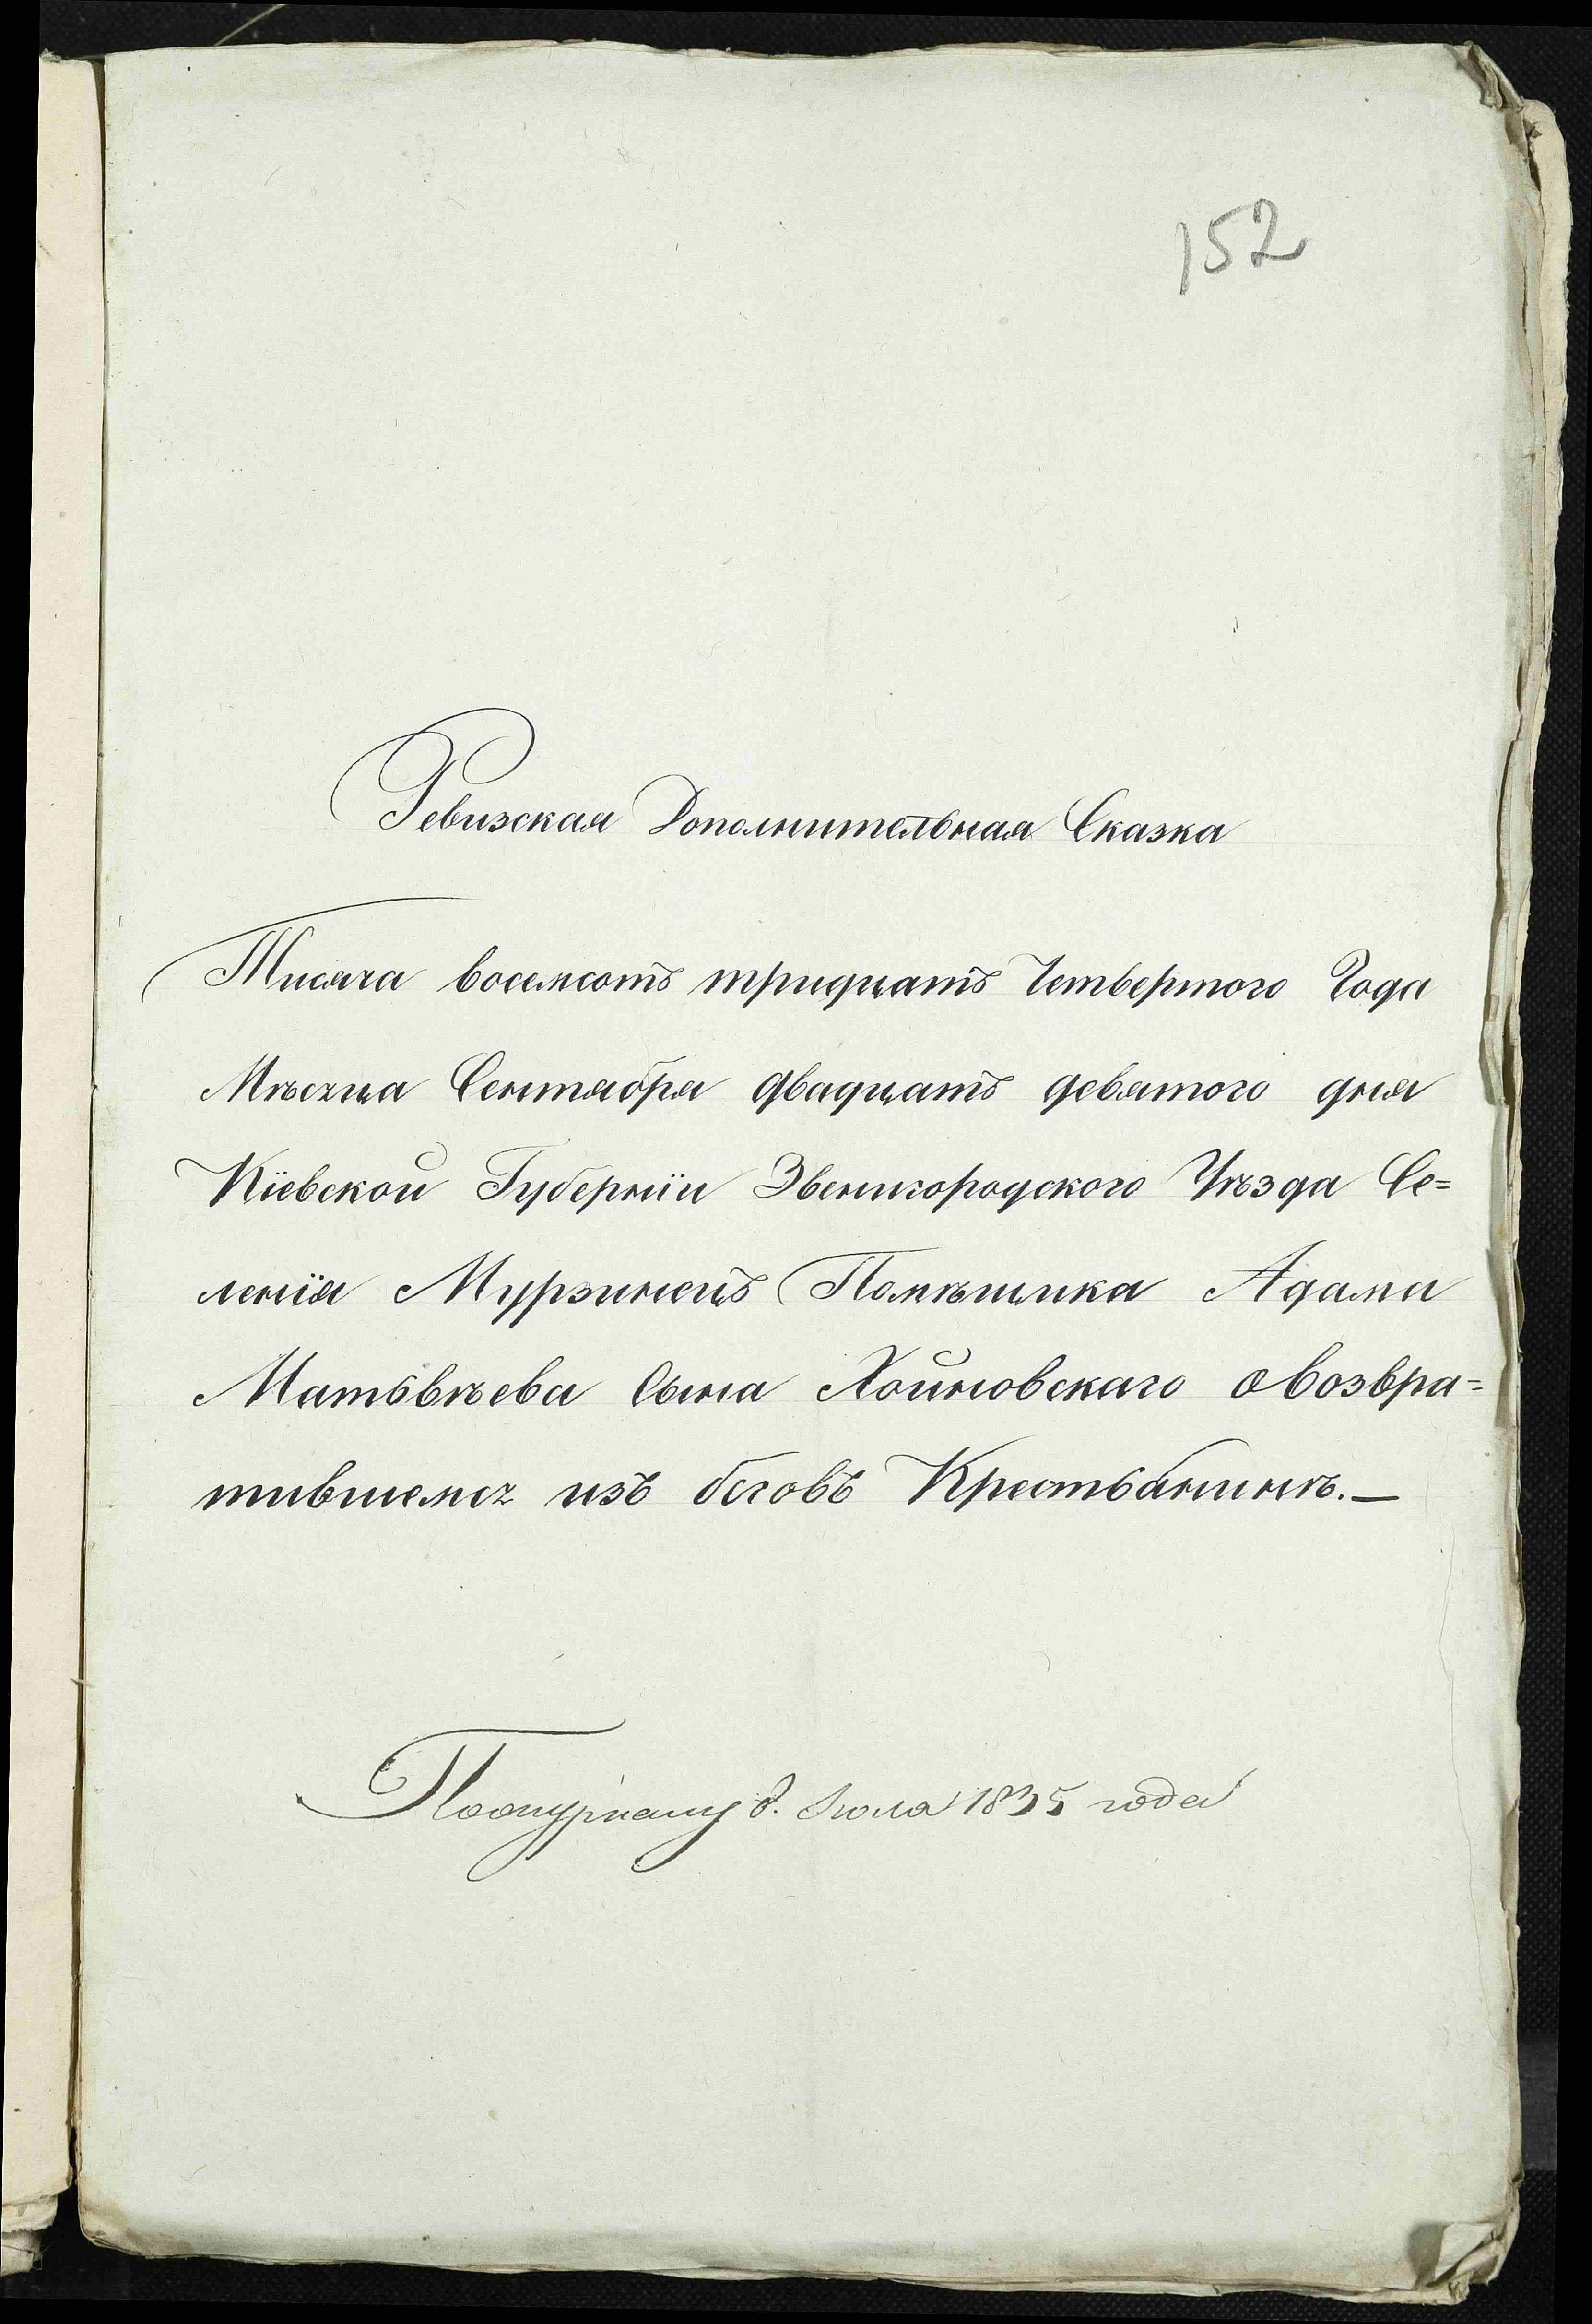 152
Ревизская Дополнительная Сказка
Тисяча восемсотъ тридцатъ Четвертого Года
Мѣсеца Сентября двадцатъ девятого дня
Кіевской Губерніи Звенигородского Уѣзда Се=
ленія Мурзинецъ Помѣщика Адама
Матьвѣева Сына Хойновскаго о возвра=
тившемся изъ беговъ Крестьянинѣ.—
1835 года